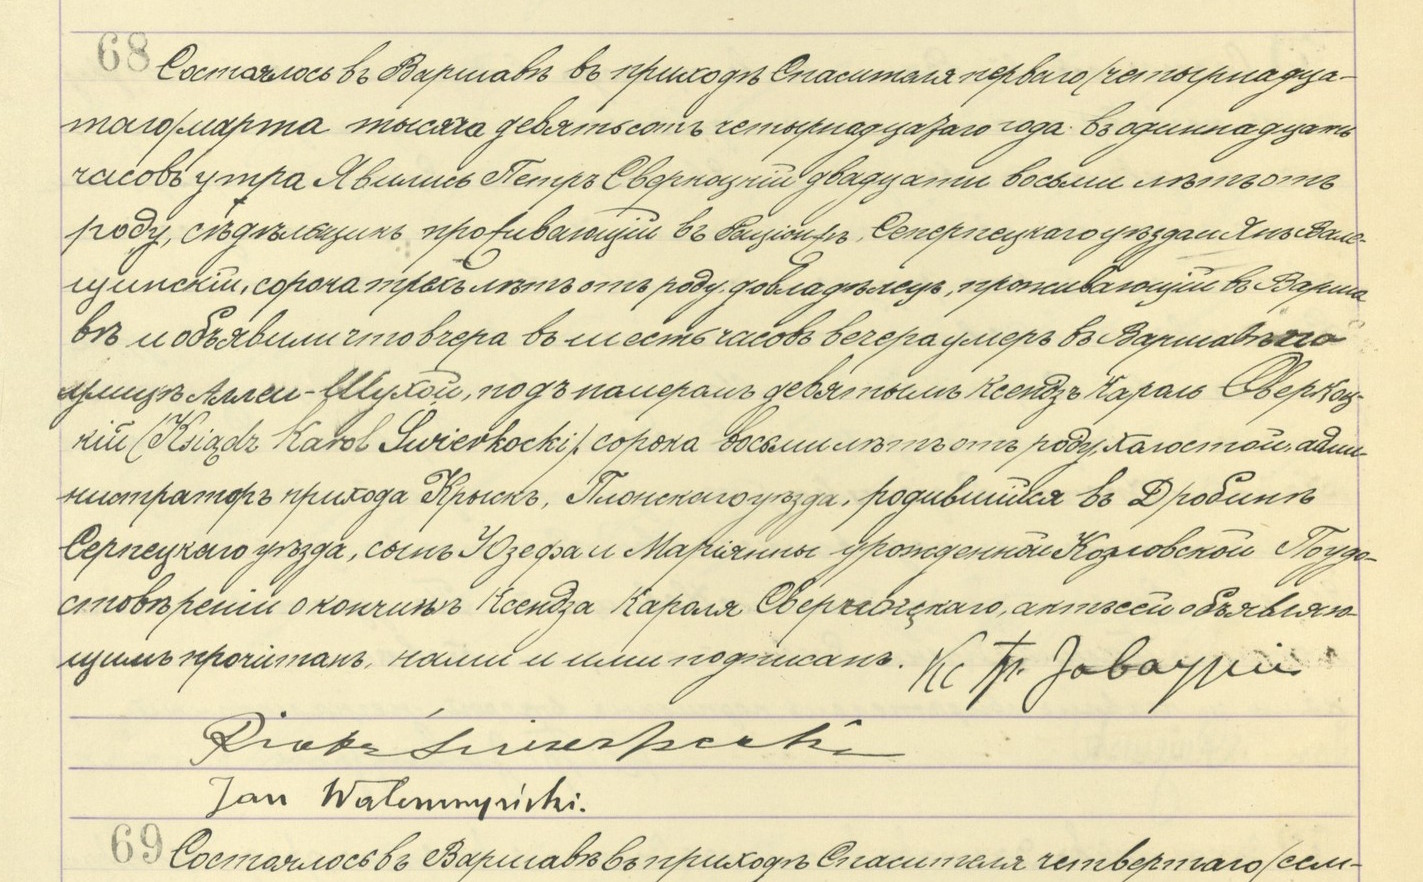 68 Состоялось въ Варшавѣ въ приходѣ Спасителя перваго/четырнадца-
таго/марта тысяча девятьсотъ четырнадцатаго года въ одиннадцать
часовъ утра Явились Петръ Сверкоцкій двадцати восьми лѣтъ отъ
роду, сѣдѣльщикъ проживающій въ уѣзда и Янъ Вале-
щинскій, сорока трехъ лѣтъ отъ роду, проживающій въ Варша
вѣ и объявили что вчера въ шесть часовъ вечера умеръ въ Варшавѣ по
улицѣ Аллеи-Шухой, подъ номеромъ девятымъ Ксендзъ Кароль Сверкоц-
кій (Ksiądz Karol Świerkocki) сорока восьми лѣтъ отъ роду, холостой, адми-
нистраторъ прихода Крыскъ, Плонскаго уѣзда, родившійся въ Дробинѣ
Серпецкаго уѣзда, сынъ Юзефа и Маріянны урожденной Козловской По удо-
стовѣреніи о кончинѣ Ксендза Кароля Сверкоцкаго, актъ сей объявляю-
щимъ прочитанъ, нами и ими подписанъ. Кс
Piotr Świerkocki
Jan
69 Состоялось въ Варшавѣ въ приходѣ Спасителя четвертаго/сем-